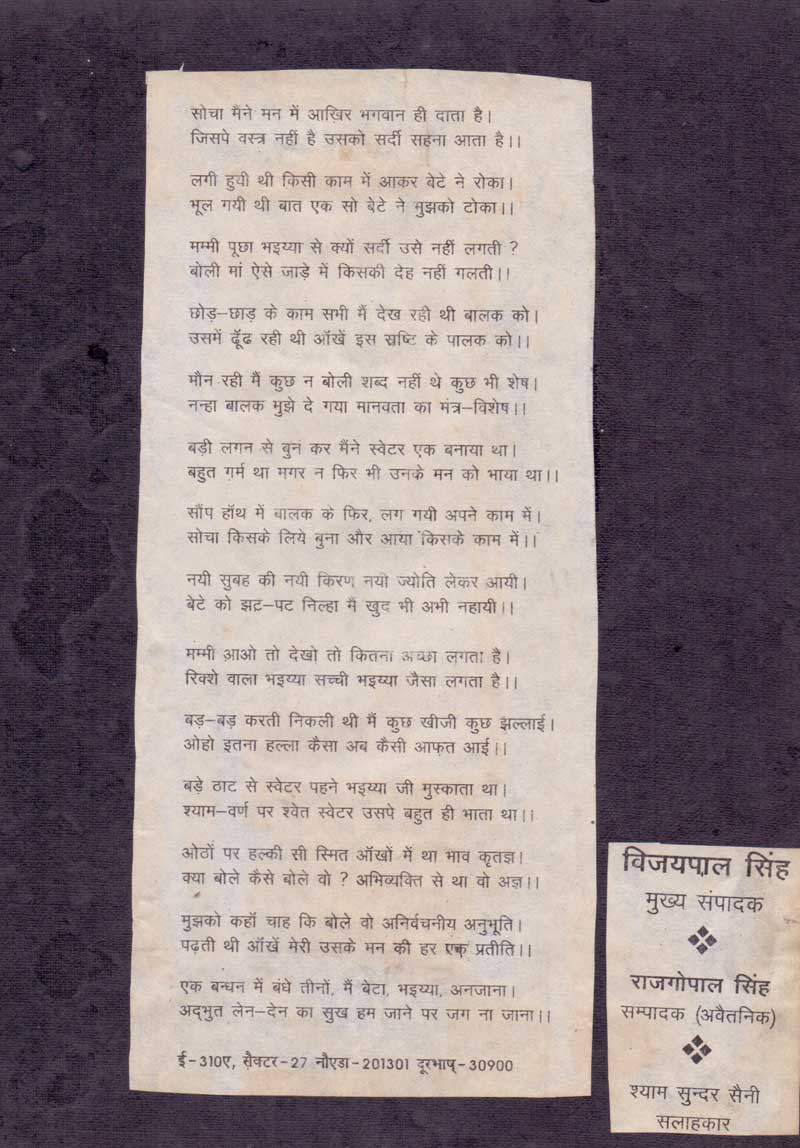 सोचा मैंने मन में आख़िर भगवान ही दाता है।
जिसपे वस्त्र नहीं है उसको सर्दी सहना आता है।।
लगी हुयी थी किसी काम में आकर बेटे ने रोका।
भूल गयी थी बात एक सो बेटे ने मुझको टोका।।
मम्मी पूछा भइय्या से क्यों सर्दी उसे नहीं लगती ?
बोली मां ऐसे जाड़े में किसकी देह नहीं गलती।।
छोड़-छाड़ के काम सभी मैं देख रही थी बालक को।
उसमें ढूँढ रही थी ऑखें इस स्रष्टि के पालक को।।
मौन रही मैं कुछ न बोली शब्द नहीं थे कुछ भी शेष।
नन्हा बालक मुझे दे गया मानवता का मंत्र-विशेष।।
बड़ी लगन से बुन कर मैंने स्वेटर एक बनाया था।
बहुत गर्म था मगर न फिर भी उनके मन को भाया था।।
सौंप हॉथ में बालक के फिर, लग गयी अपने काम में।
सोचा किसके लिये बुना और आया किसके काम में।।
नयी सुबह की नयी किरण नयी ज्योति लेकर आयी।
बेटे को झट-पट निल्हा मैं खुद भी अभी नहायी।।
मम्मी आओ तो देखो तो कितना अच्छा लगता है।
रिक्शे वाला भइय्या सच्ची भइय्या जैसा लगता है।।
बड़-बड़ करती निकली थी मैं कुछ खीजी कुछ झल्लाई।
ओहो इतना हल्ला कैसा अब कैसी आफ़त आई।।
बड़े ठाट से स्वेटर पहने भइय्या जी मुस्काता था।
श्याम-वर्ण पर श्वेत स्वेटर उसपे बहुत ही भाता था।।
ओठों पर हल्की सी स्मित ऑखों में था भाव कृतज्ञ।
क्या बोले कैसे बोले वो ? अभिव्यक्ति से था वो अज्ञ।।
मुझको कहॉ चाह कि बोले वो अनिर्वचनीय अनुभूति।
पढ़ती थी ऑखें मेरी उसके मन की हर एक प्रतीति।।
एक बन्धन में बंधे तीनों, मैं बेटा, भइय्या, अनजाना।
अद्भुत लेन-देन का सुख हम जाने पर जग ना जाना।।
ई-310ए, सैक्टर-27 नौएडा-201301 दूरभाष्-30900
विजयपाल सिंह
मुख्य संपादक
राजगोपाल सिंह
सम्पादक (अवैतनिक)
श्याम सुन्दर सैनी
सलाहकार